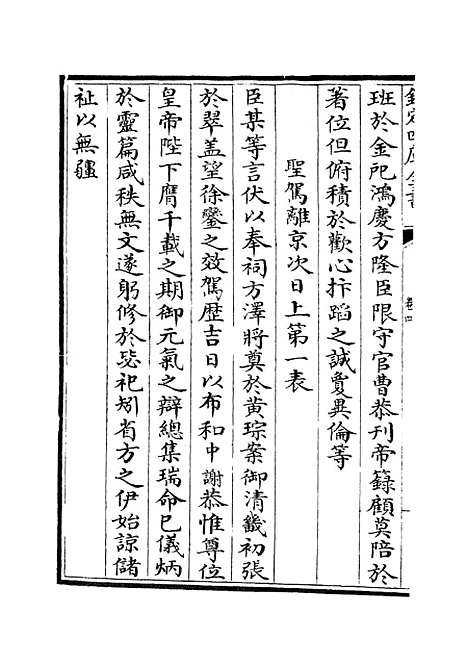 欽定四庫全書
卷四
班於金祀鴻慶方隆臣限守官曹恭刋帝籙顧莫陪於
著位但俯積於歡心抃蹈之誠夐異倫等
聖駕離京次日上第一表
臣某等言伏以奉祠方澤將奠於黄琮案御清畿初張
於翠盖望徐鑾之效駕歴吉日以布和中謝恭惟尊位
皇帝陛下膺千載之期御元氣之辯總集瑞命已儀炳
於靈篇咸秩無文遂躬修於毖祀矧省方之伊始諒儲
祉以無疆